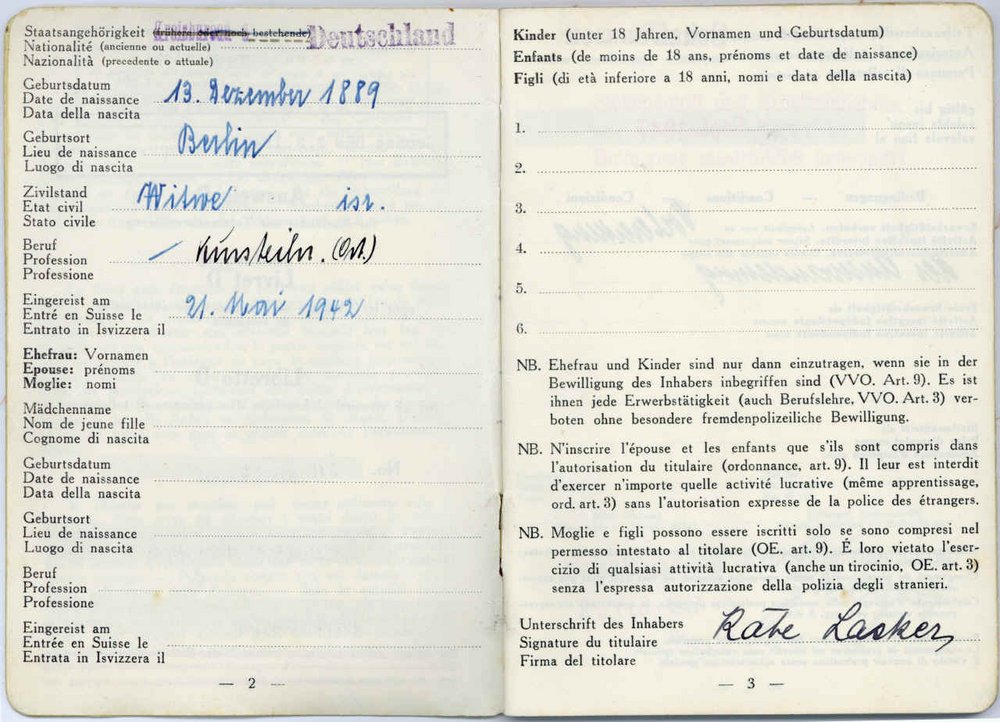 Staatsangehörigkeit (frühere oder noch bestehende) Deutschland
Nationalité (ancienne ou actuelle)
Nazionalità (precedente o attuale)
Geburtsdatum
Date de naissance 13. Dezember 1889
Data della nascita
Geburtsort
Lieu de naissance Berlin
Luogo di nascita
Zivilstand
Etat civil Witwe isr.
Stato civile
Beruf
Profession
Professione
Eingereist am
Entré en Suisse le 21. Mai 1942
Entrato in Isvizzera il
Ehefrau: Vornamen
Epouse: prénoms
Moglie: nomi
Mädchenname
Nom de jeune fille
Cognome di nascita
Geburtsdatum
Date de naissance
Data della nascita
Geburtsort
Lieu de naissance
Luogo di nascita
Beruf
Profession
Professione
Eingereist am
Entrée en Suisse le
Entrata in Isvizzera il
— 2 —
Kinder (unter 18 Jahren, Vornamen und Geburtsdatum)
Enfants (de moins de 18 ans, prénoms et date de naissance)
Figli (di età inferiore a 18 anni, nomi e data della nascita)
1.
2.
3.
4.
5.
6.
NB. Ehefrau und Kinder sind nur dann einzutragen, wenn sie in der
Bewilligung des Inhabers inbegriffen sind (VVO. Art. 9). Es ist
ihnen jede Erwerbstätigkeit (auch Berufslehre, VVO. Art. 3) ver-
boten ohne besondere fremdenpolizeiliche Bewilligung.
NB. N'inscrire l'épouse et les enfants que s'ils sont compris dans
l'autorisation du titulaire (ordonnance, art. 9). Il leur est interdit
d'exercer n'importe quelle activité lucrative (même apprentissage,
ord. art. 3) sans l'autorisation expresse de la police des étrangers.
NB. Moglie e figli possono essere iscritti solo se sono compresi nel
permesso intestato al titolare (OE. art. 9). É loro vietato l'eser-
cizio di qualsiasi attività lucrativa (anche un tirocinio, OE. art. 3)
senza l'espressa autorizzazione della polizia degli stranieri.
Unterschrift des Inhabers
Signature du titulaire Kate Lasker
Firma del titolare
— 3 —